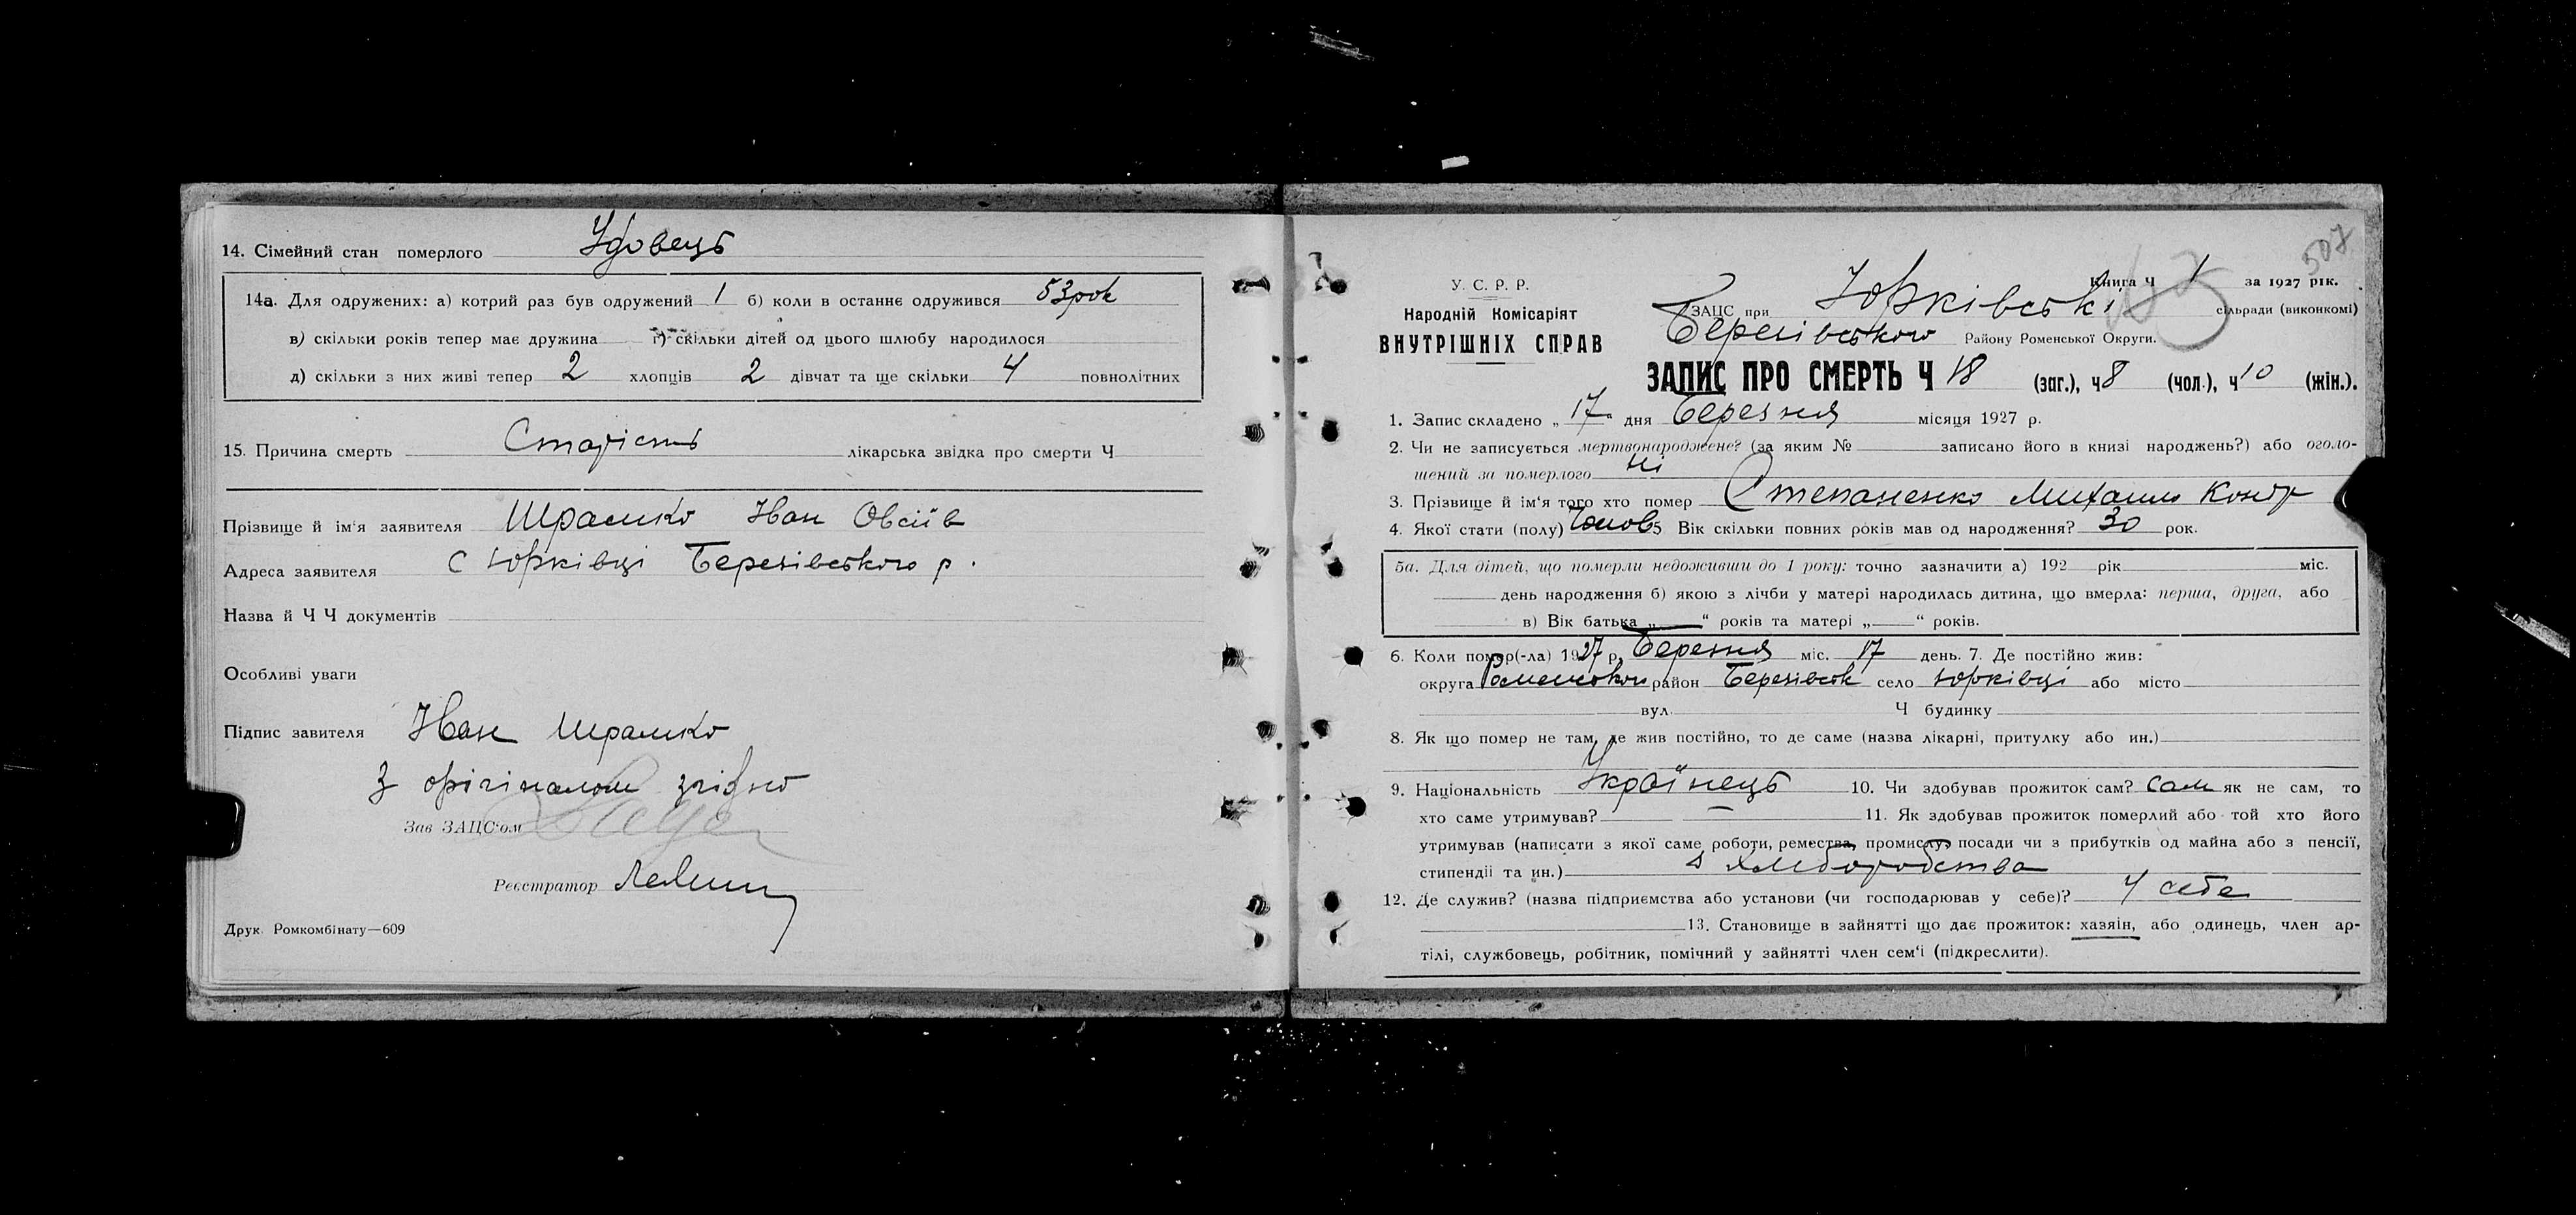 14. Сімейний стан померлого Удовець
14а. Для одружених: а) котрий раз був одружений 1 б) коли в останнє одружився 53 рок
в) скільки років тепер має дружина г) скільки дітей од цього шлюбу народилося
д) скільки з них живі тепер 2 хлопців 2 дівчат та ще скільки 4 повнолітних
15. Причина смерть Старість лікарська звідка про смерти Ч
Прізвище й ім'я заявителя Шрамко Іван Овсіїв
Адреса заявителя с Юрківці Березівського р.
Назва й Ч Ч документів
Особливі уваги
Підпис завителя Іван Шрамко
З орігіналом згідно
Зав ЗАЦС'ом
Реєстратор
Друк. Ромкомбінату—609
507
У. С. Р. Р.
Народній Комісаріят
ВНУТРІШНІХ СПРАВ
Книга Ч 1 за 1927 рік.
ЗАЦС при Юрківські сільради (виконкомі)
Березівського Району Роменської Округи.
ЗАПИС ПРО СМЕРТЬ Ч 18 (заг.), ч 8 (чол.), ч 10 (жін.).
1. Запис складено „17" дня Березня місяця 1927 р.
2. Чи не записується мертвонароджене? (за яким № записано його в книзі народжень?) або оголо-
шений за померлого ні
3. Прізвище й ім'я того хто помер Степаненко Михайло Кондр
4. Якої стати (полу) Чолов 5 Вік скільки повних років мав од народження? 30 рок.
5а. Для дітей, що померли недоживши до 1 року: точно зазначити а) 192 рік міс.
день народження б) якою з лічби у матері народилась дитина, що вмерла: перша, друга, або
в) Вік батька „ " років та матері „ " років.
6. Коли помер(-ла) 1927 р. Березня міс. 17 день. 7. Де постійно жив:
округа Роменської район Березівськ село Юрківці або місто
вул. Ч будинку
8. Як що помер не там, де жив постійно, то де саме (назва лікарні, притулку або ин.)
9. Національність Українець 10. Чи здобував прожиток сам? сам як не сам, то
хто саме утримував? — 11. Як здобував прожиток померлий або той хто його
утримував (написати з якої саме роботи, ремества, промислу, посади чи з прибутків од майна або з пенсії,
стипендії та ин.) з хліборобства
12. Де служив? (назва підприємства або установи (чи господарював у себе)? У себе
13. Становище в зайнятті що дає прожиток: хазяін, або одинець, член ар-
тілі, службовець, робітник, помічний у зайнятті член сем'ї (підкреслити).